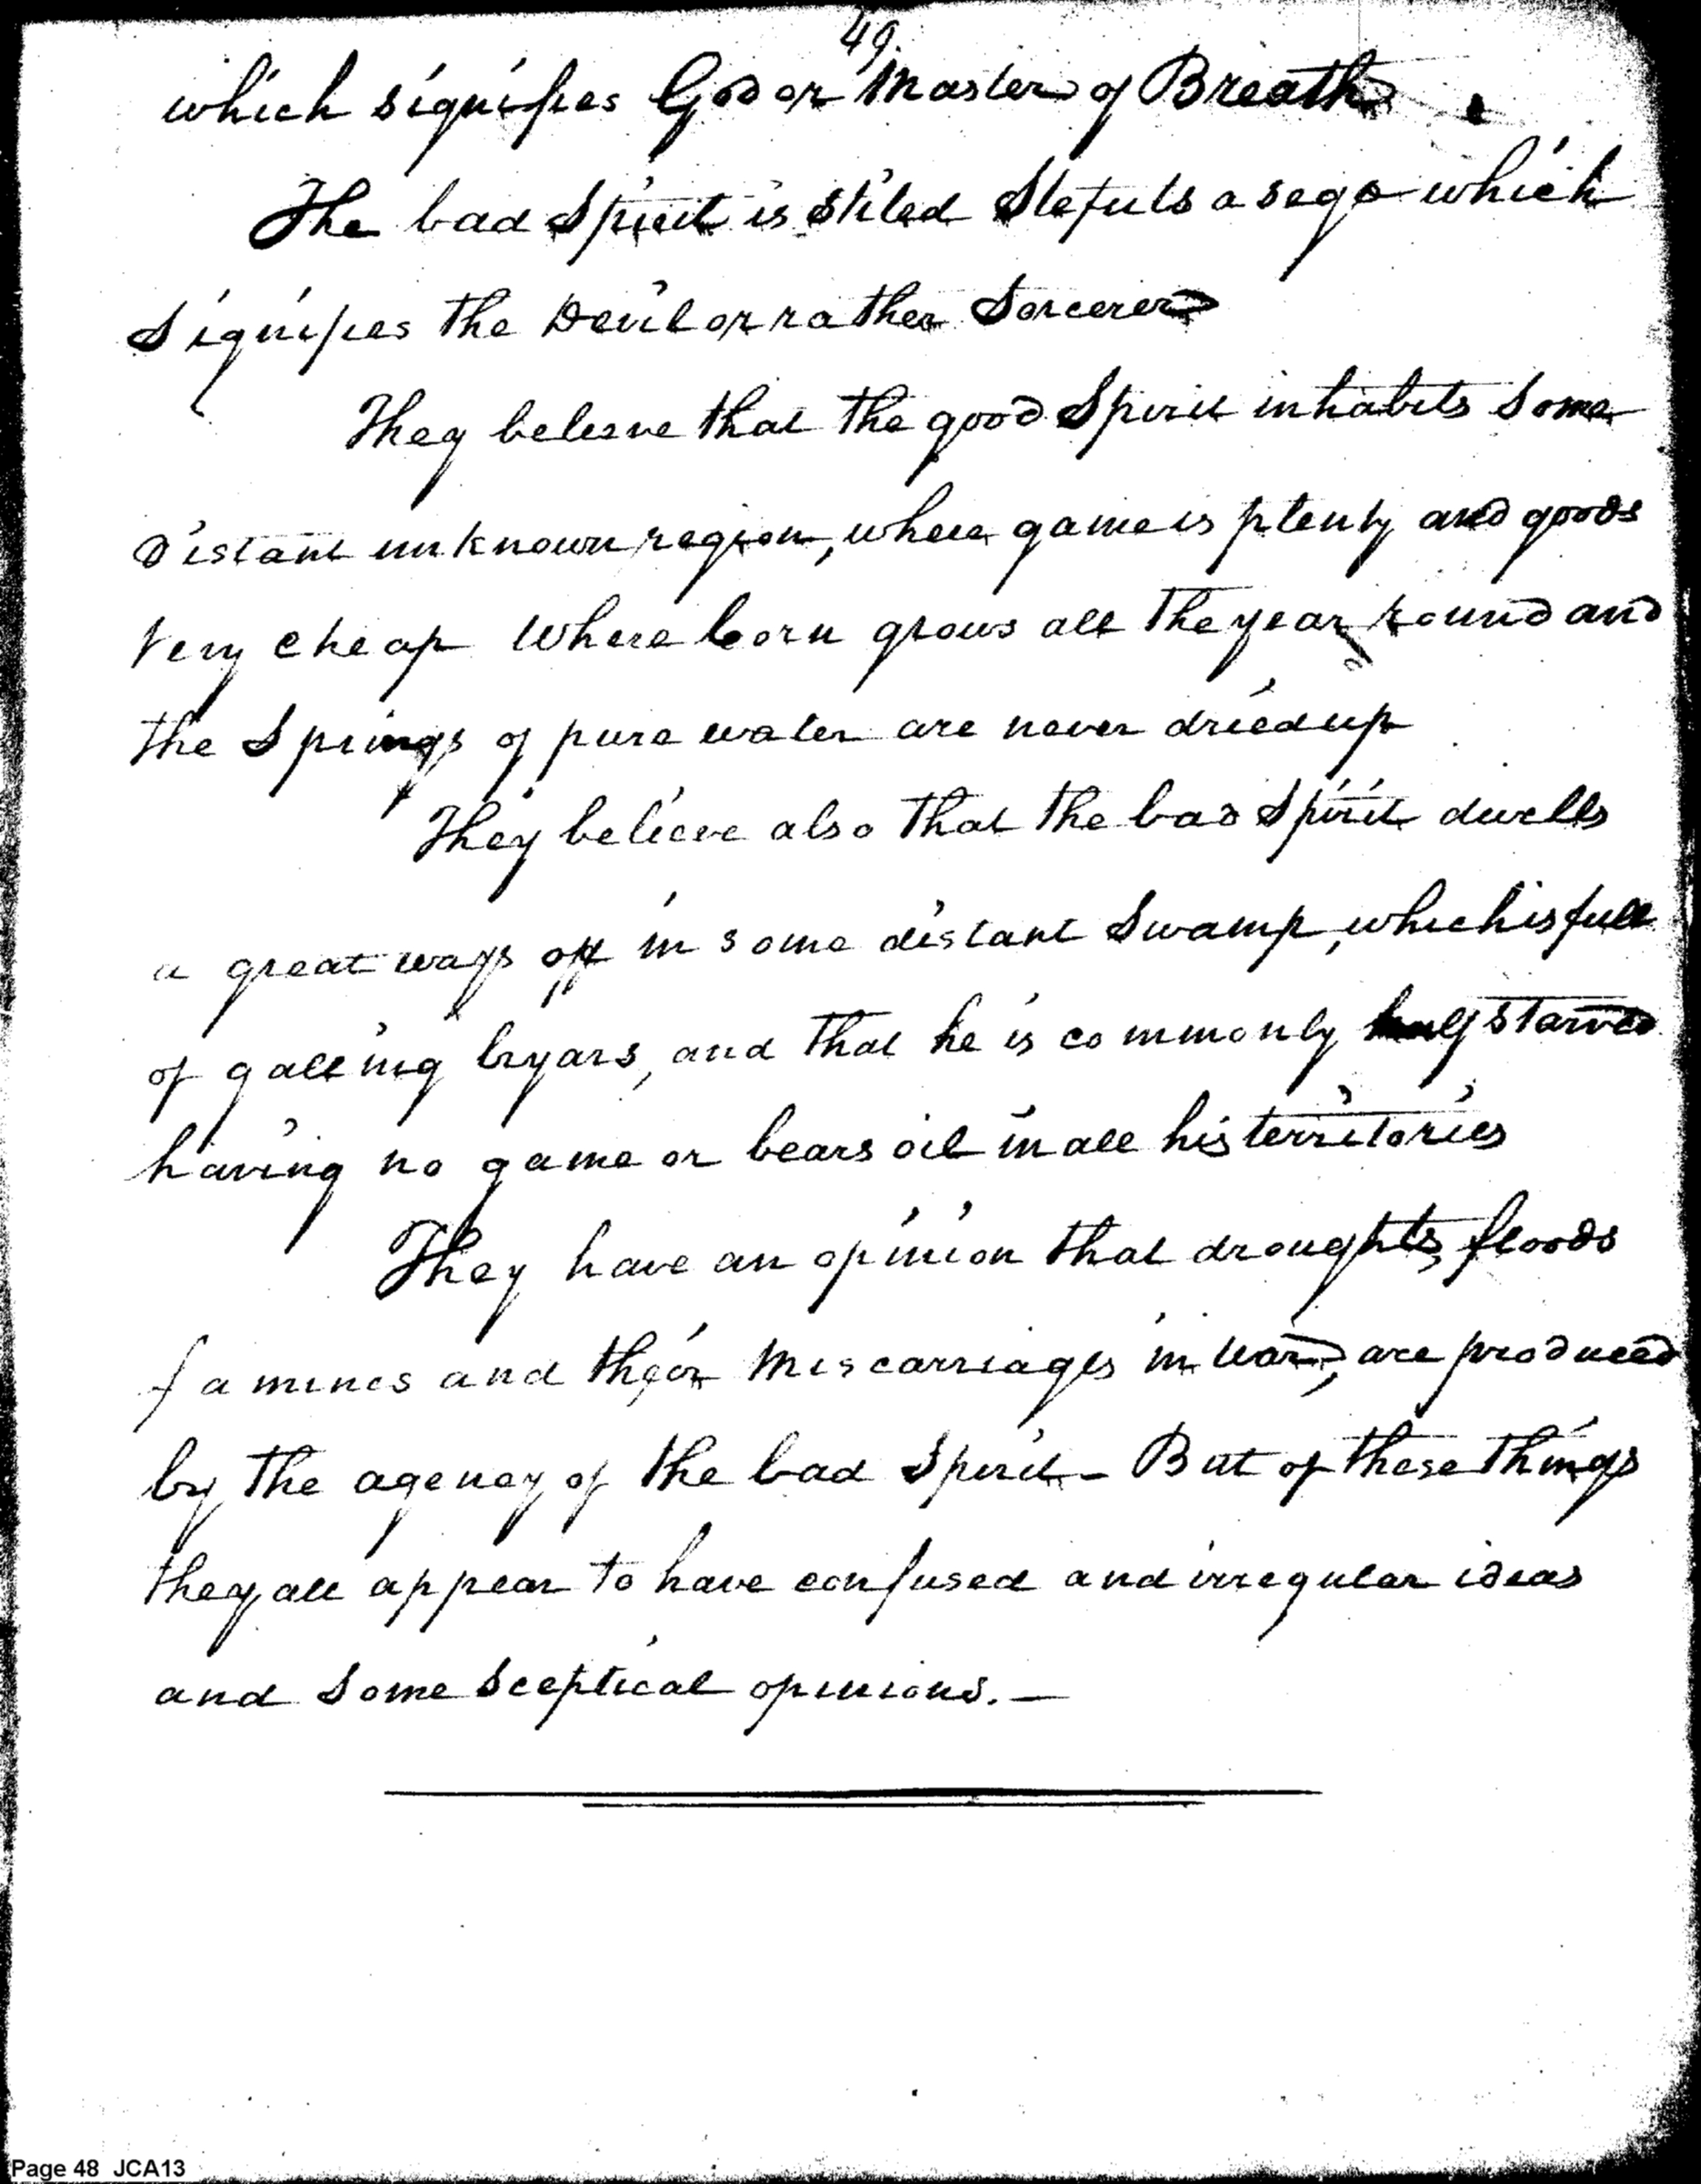 49.
which signifies God or Master of Breath.
The bad Spirit is stiled Stefuts asego which
signifies the Devil or rather Sorcerer
They beleive that the good Spirit inhabits some
distant unknown region, where game is plenty and goods
very cheap where Corn grows all the year round and
the Springs of pure water are never dried up
They believe also that the bad Spirit dwells
a great ways off in some distant Swamp, which is full
of galling bryars, and that he is commonly half starved
having no game or bears oil in all his territories
They have an opinion that droughts, floods
famines and their miscarriages in war, are produced
by the agency of the bad Spirit - But of these things
they all appear to have confused and irregular ideas
and some sceptical opinions. —
Page 48 JCA13